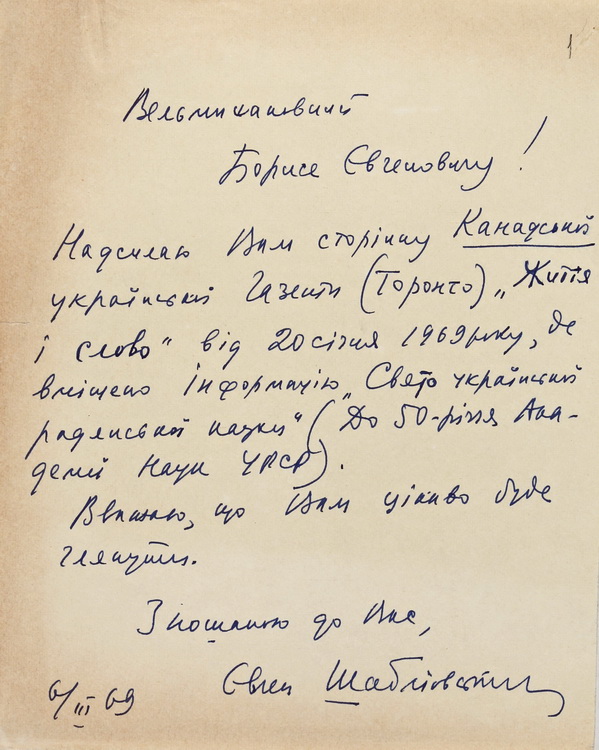 1
Вельмишановний
Борисе Євгеновичу!
Надсилаю Вам сторінку Канадської
української Газети (Торонто) „Життя
і слово“ від 20 січня 1969 року, де
вміщено інформацію „Свято української
радянської науки“ (До 50-річчя Ака-
демії Наук УРСР).
Вважаю, що Вам цікаво буде
глянути.
З пошаною до Вас,
Євген Шабліовський
6/III 69